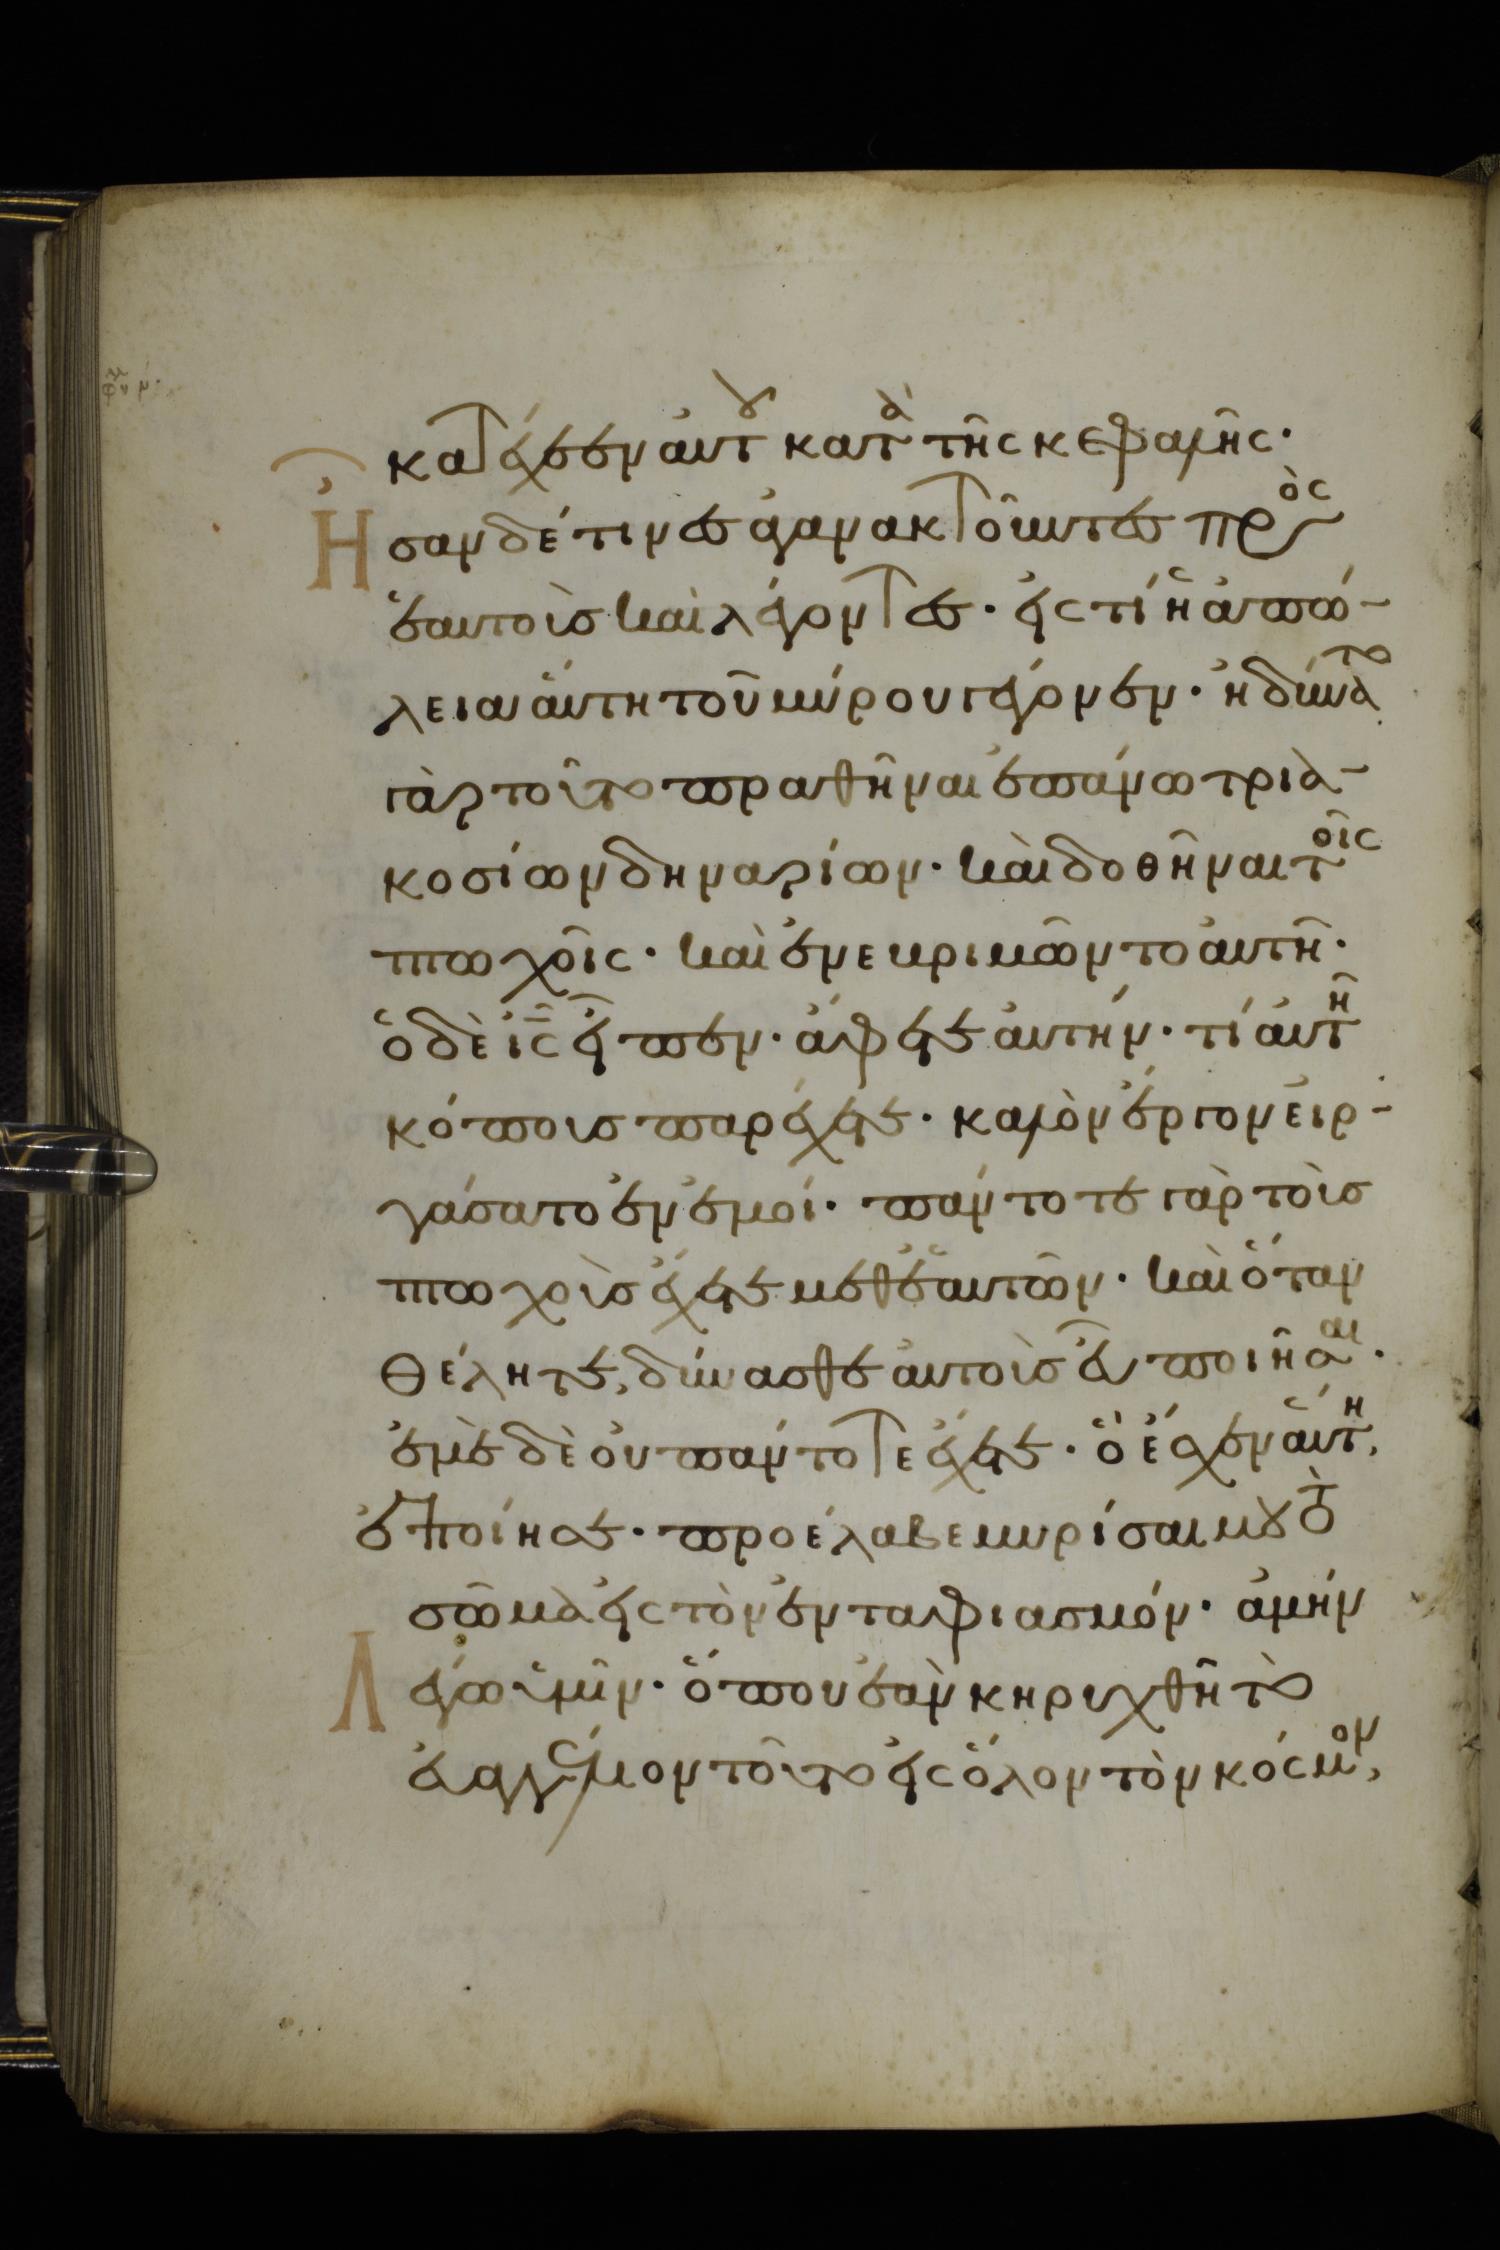 κατέχεεν αυτου κατὰ τῆς κεφαλῆς·
Ἦσαν δέ τινες ἀγανακτοῦντες πρὸς
ἑαυτοὺς καὶ λέγοντες· εἰς τί ἡ ἀπώ-
λεια αὕτη τοῦ μύρου γέγονεν· ἠδύνατο
γὰρ τοῦτο πραθῆναι ἐπάνω τρια-
κοσίων δηναρίων· καὶ δοθῆναι τοῖς
πτωχοῖς· καὶ ἐνεβριμῶντο αὐτῆ·
ὁ δὲ ις εἶπεν· ἄφετε αὐτήν· τί αὐτῆ
κόπους παρέχετε· καλὸν ἔργον εἰρ-
γάσατο ἐν ἐμοί· πάντοτε γὰρ τοὺς
πτωχοὺς ἔχετε μεθ' ἑαυτῶν· καὶ ὅταν
θέλητε, δύνασθε αὐτοὺς εὖ ποιῆσαι·
ἐμὲ δὲ οὐ πάντοτε ἔχετε· ὃ ἔσχεν αὕτη,
ἐποίησε· προέλαβε μυρίσαι μου τὸ
σῶμα εἰς τὸν ἐνταφιασμόν· ἀμὴν
Λέγω ὑμῖν· ὅπου ἐὰν κηρυχθῆ τὸ
εὐαγγέλιον τοῦτο εἰς ὅλον τὸν κόσμον,